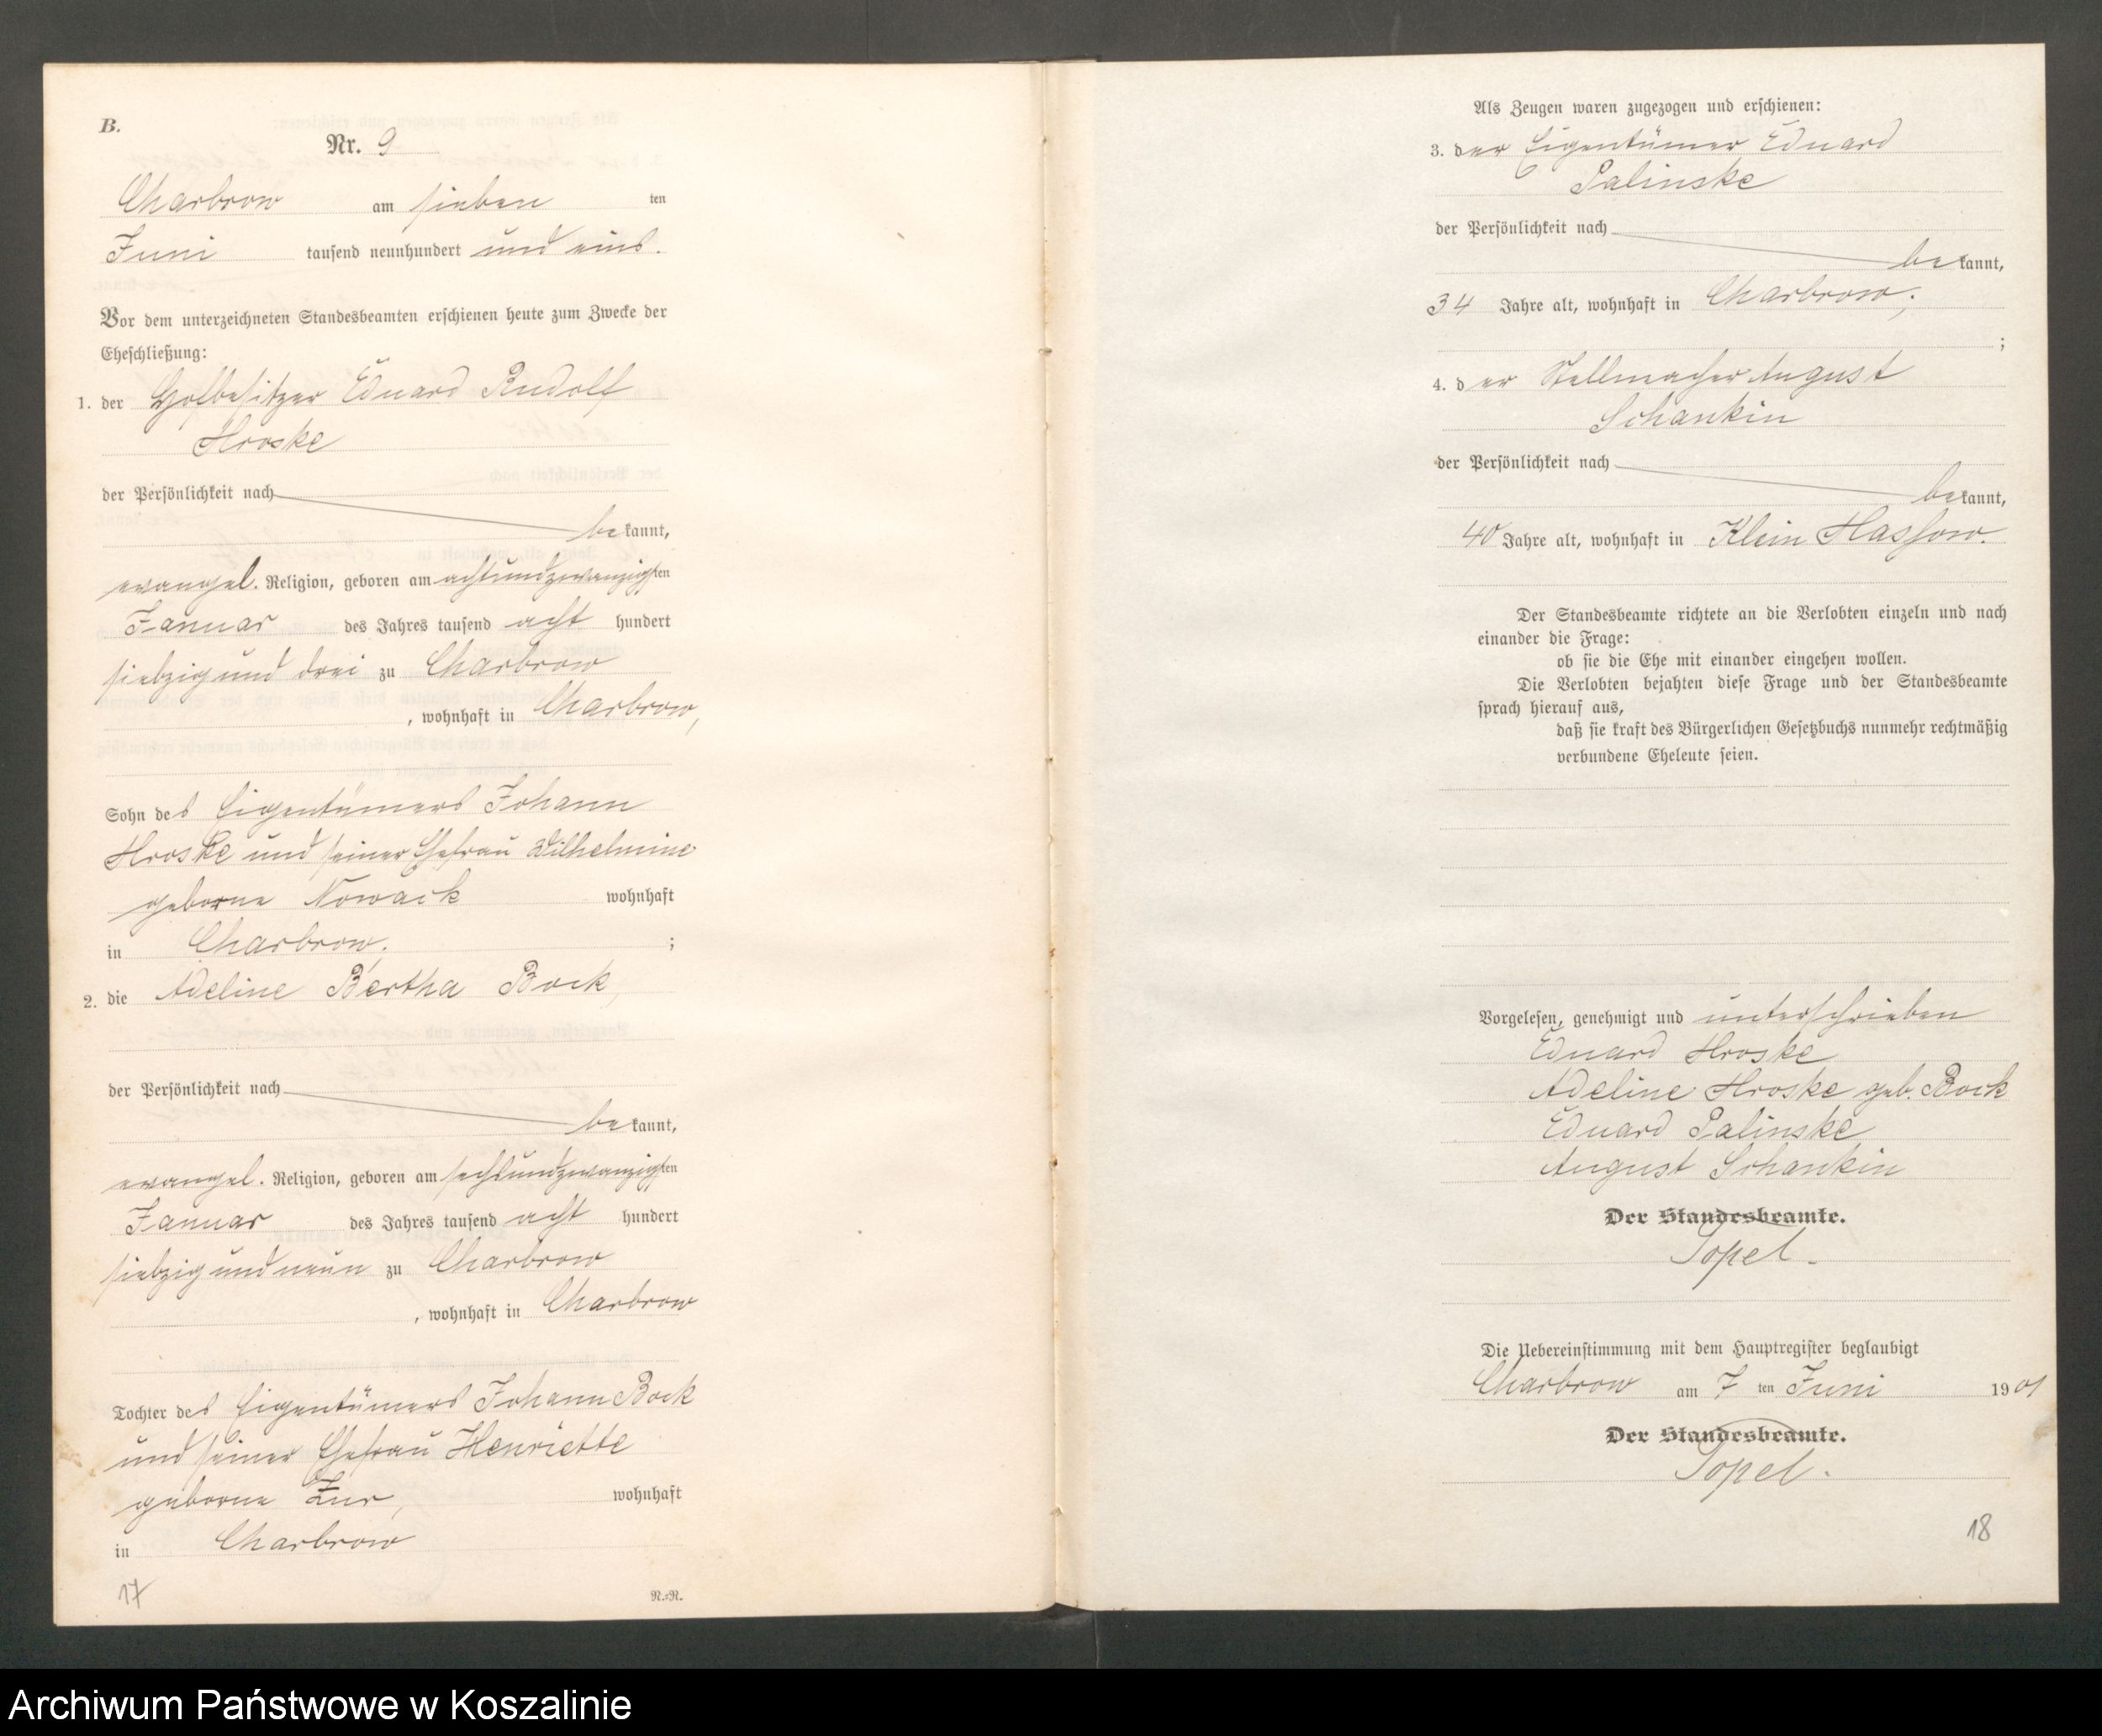 B.
Nr. 9
Charbrow am sieben ten
Juni tausend neunhundert und eins.
Vor dem unterzeichneten Standesbeamten erschienen heute zum Zwecke der
Eheschließung:
1. der Hofbesitzer Eduard Rudolf
Hroske
der Persönlichkeit nach
bekannt,
evangel. Religion, geboren am achtundzwanzigsten
Januar des Jahres tausend acht hundert
siebzig und drei zu Charbrow
, wohnhaft in Charbrow,
Sohn des Eigentümers Johann
Hroske und seiner Ehefrau Wilhelmine
geborne Nowack wohnhaft
in Charbrow, ;
2. die Adeline Bertha Bock,
der Persönlichkeit nach
bekannt,
evangel. Religion, geboren am sechsundzwanzigsten
Januar des Jahres tausend acht hundert
siebzig und neun zu Charbrow
, wohnhaft in Charbrow
Tochter des Eigentümers Johann Bock
und seiner Ehefrau Henriette
geborne wohnhaft
in Charbrow
17
N.=R.
Als Zeugen waren zugezogen und erschienen:
3. der Eigentümer Eduard
Palinske
der Persönlichkeit nach
bekannt,
34 Jahre alt, wohnhaft in Charbrow,
;
4. der Stellmacher August
Schankin
der Persönlichkeit nach
bekannt,
40 Jahre alt, wohnhaft in Klein Massow.
Der Standesbeamte richtete an die Verlobten einzeln und nach
einander die Frage:
ob sie die Ehe mit einander eingehen wollen.
Die Verlobten bejahten diese Frage und der Standesbeamte
sprach hierauf aus,
daß sie kraft des Bürgerlichen Gesetzbuchs nunmehr rechtmäßig
verbundene Eheleute seien.
Vorgelesen, genehmigt und unterschrieben
Eduard Hroske
Adeline Hroske geb. Bock
Eduard Palinske
August Schankin
Der Standesbeamte.
Popel.
Die Uebereinstimmung mit dem Hauptregister beglaubigt
Charbrow am 7 ten Juni 1901
Der Standesbeamte.
Popel.
18
Archiwum Państwowe w Koszalinie